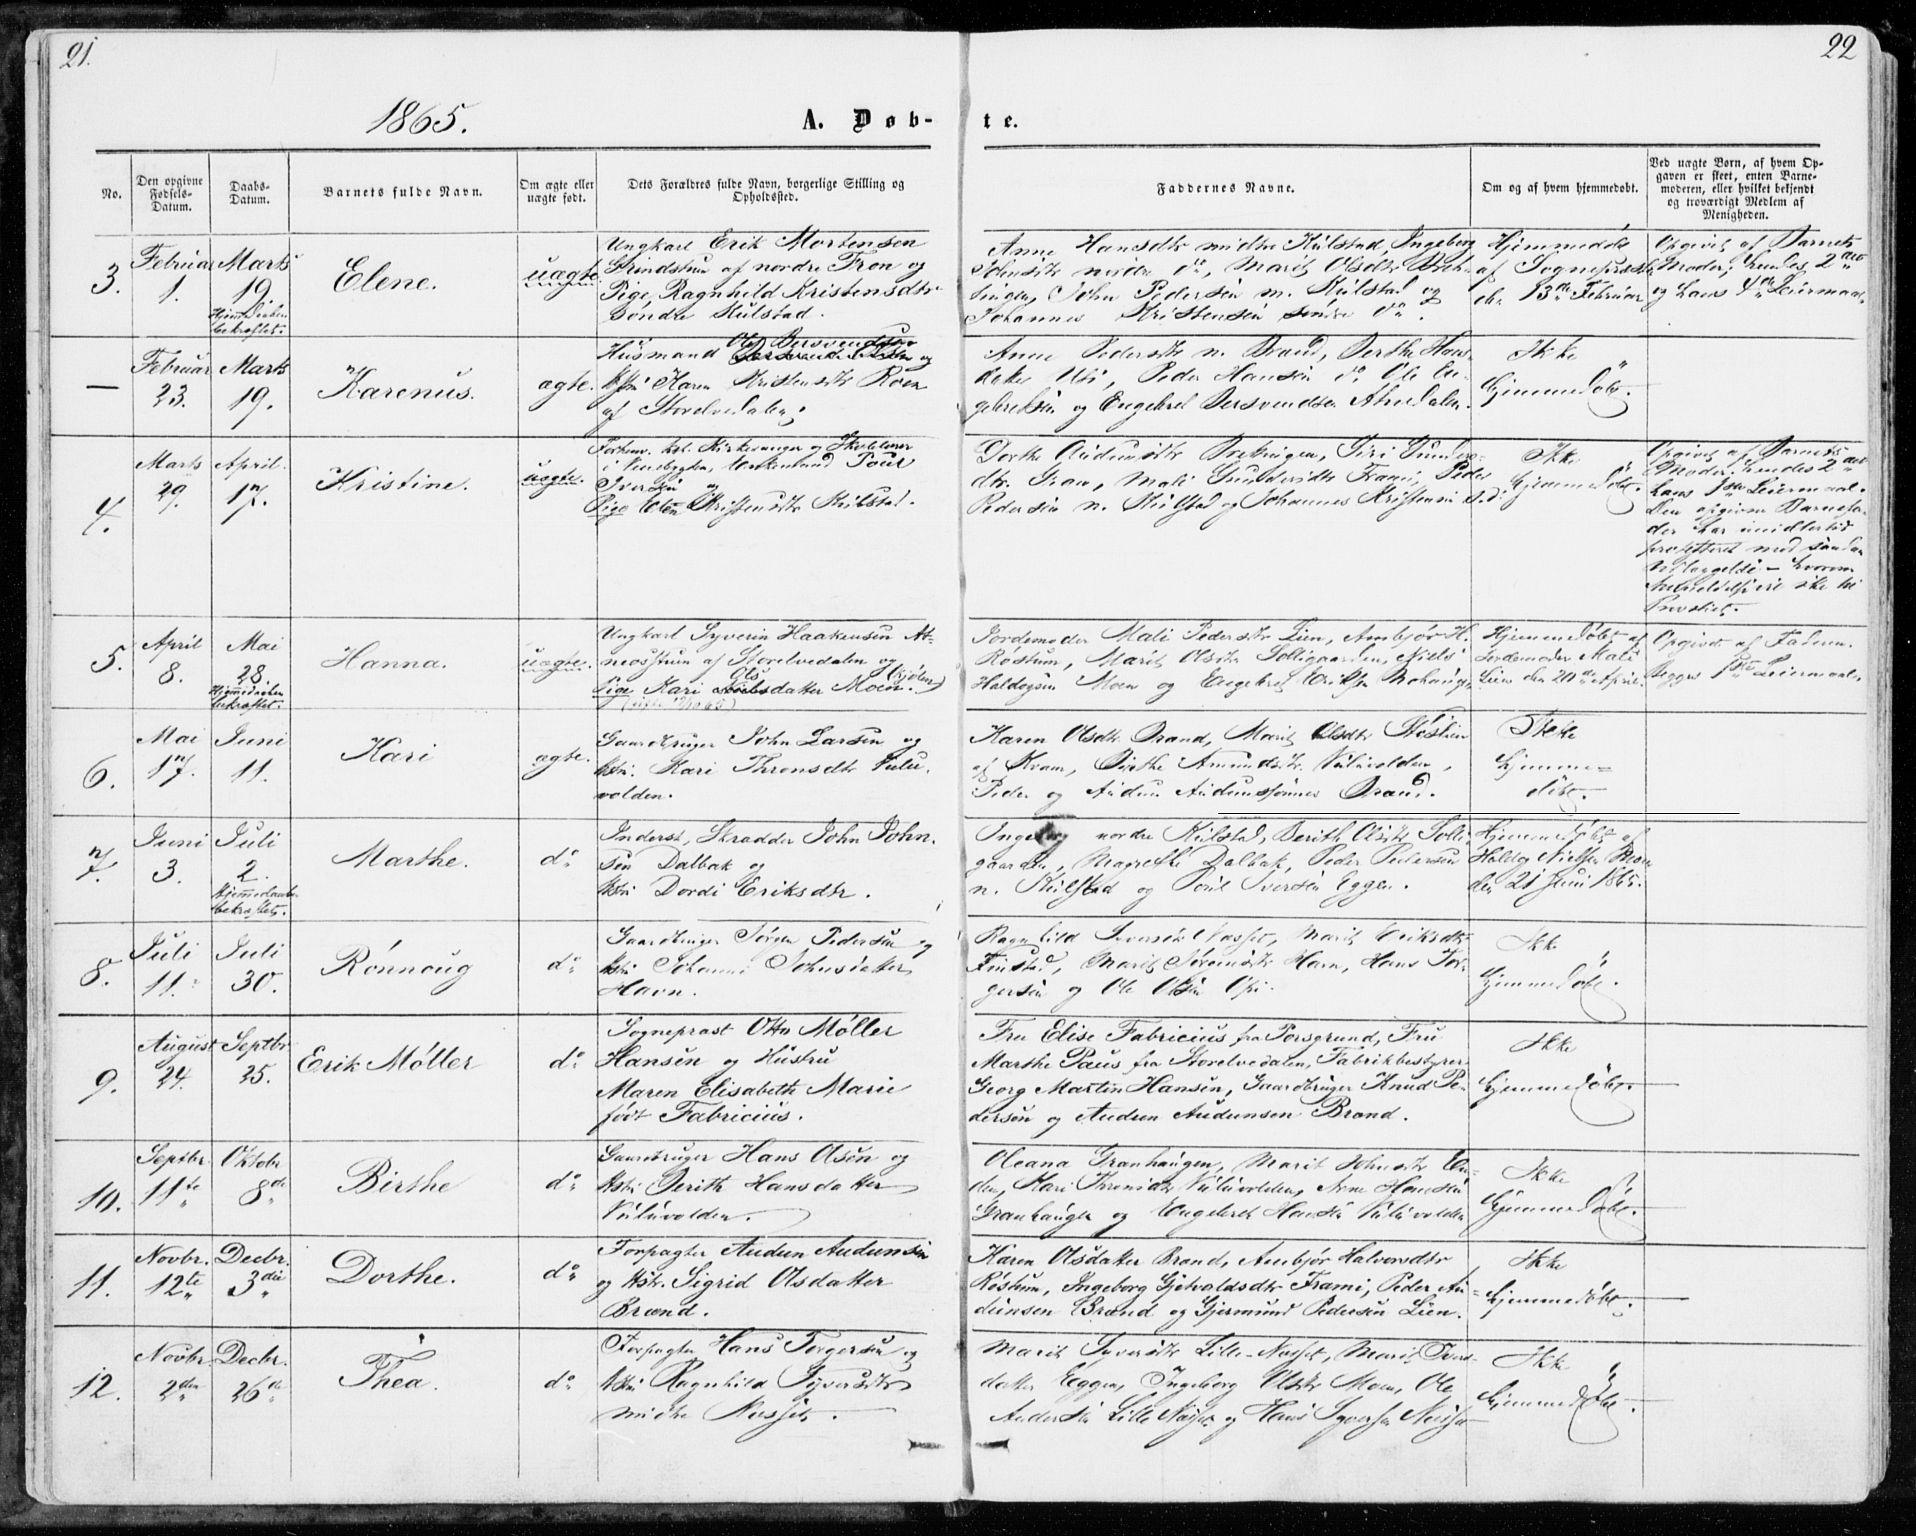 21.
22
1865.
A. Døb-
te.
No.
Den opgivne Fødsels-Datum.
Daabs-Datum.
Barnets fulde Navn.
Om ægte eller uægte født.
Dets Forældres fulde Navn, borgerlige Stilling og Opholdssted.
Faddernes Navne.
Om og af hvem hjemmedøbt.
Ved uægte Børn, af hvem Opgaven er skeet, enten Barnemoderen, eller hvilket bekjendt og troværdigt Medlem af Menigheden.
3.
Februar
1.
Marts
19
Hjemmedaaben
bekræftet.
Elene.
uægte
Ungkarl Erik Mortensen
af nordre Tron og
Pige Ragnhild Kristensdtr
søndre Kulstad.
Anne Hansdtr midtre Kulstad Ingeborg
Johnsdtr nordre do, Marit Olsdtr
John Pedersen n. Kulstad og
Johannes Kristensen søndre do.
Hjemmedøbt
af Sognepræst
den 13de Februar
Opgivet af Barnets
Moder; hendes 2det
og hans 4de Leiermaal.
—
Februar
23.
Marts
19.
Karenus.
ægte.
Husmand Ole Bersvendsen
og
Hstr Karen Kristensdtr Roen
af Storelvedalen.
Anne Pedersdtr n. Brænd, Berthe Hans-
datter Usi, Peder Hansen do Ole En-
gebretsen og Engebret Bersvendsen Atnedalen.
Ikke
hjemmedøbt.
4.
Marts
29.
April.
17.
Kristine.
uægte.
Forhenv. Kirkesanger og Skolelærer
Poul
Iversen og
Pige Elen Kristensdtr Kulstad.
Dorthe Audunsdtr
Pedersen n. Kulstad og Johannes Kristensen s. do
Ikke
hjemmedøbt.
Opgivet af Barnets
Moder. hendes 2det
hans 1ste Leiermaal.
Den opgivne Barnefa-
der har imidlertid
protesteret mod saadan
Provstiet.
5.
April
8.
Mai
28.
Hjemmedaaben
bekræftet.
Hanna.
uægte.
Ungkarl Syverin Haakensen At-
neosstuen af Storelvedalen og
Pige Kari Olsdatter Moen. (Kjølen)
Jordemoder Mali Pedersdtr Lien, Ambjør H.
Røstum, Marit Olsdtr Solligaarden, Niels
Haldogsen Moen og Engebret Eriksen
Hjemmedøbt af
Jordemoder Mali
Lien den 20de April.
Opgivet af Faderen.
Begges 1ste Leiermaal.
6.
Mai
17.
Juni
11.
Kari
ægte.
Gaardbruger John Larsen og
Hstr. Kari Thronsdtr Vulu-
volden.
Karen Olsdtr Brænd, Marit Olsdtr
af Kvam, Birthe Amundsdtr. Vuluvolden,
Peder og Audun Audunssønner Brænd.
Ikke
hjemme-
døbt.
7.
Juni
3.
Juli
2.
Hjemmedaaben
bekræftet.
Marthe.
do
Inderst, Skrædder John John-
sen Dalbak og
Hstr Dordi Eriksdtr.
Ingeborg nordre Kulstad, Berith Olsdtr Solli-
gaarden, Magrethe Dalbak, Peder Pedersen
n. Kulstad og Poul Iversen Eggen.
Hjemmedøbt af
Haldog Nielsen Moen
den 21 Juni 1865.
8.
Juli
11.
Juli
30.
Rønnoug
do
Gaardbruger Jørgen Pedersen og
Hstr Johanne Johnsdatter
Havn.
Ragnhild Iversdtr Næsset, Marit Eriksdtr
Finstad, Marit Jørgensdtr Havn, Hans Tor-
gersen og Ole Olsen Opi.
Ikke
hjemmedøbt.
9.
August
24.
Septbr
25.
Erik Møller
do
Sogneprest Otto Møller
Hansen og Hustru
Maren Elisabeth Marie
født Fabricius.
Fru Elise Fabricius fra Porsgrund, Fru
Marthe Paus fra Storelvedalen, Fabrikbestyrer
Georg Martin Hansen, Gaardbruger Knud Pe-
dersen og Audun Audunsen Brænd.
Ikke
hjemmedøbt.
10.
Septbr.
11te
Oktobr
8de
Birthe
do
Gaardbruger Hans Olsen og
Hstr Berith Hansdatter
Vuluvolden.
Oleana Granhaugen, Marit Johnsdtr En-
den, Kari Thronsdtr Vuluvolden, Arne Hansen
Granhaugen og Engebret Hansen Vuluvolden
Ikke
hjemmedøbt.
11.
Novbr.
12te
Decbr.
3die
Dorthe.
do
Forpagter Audun Audunsen
og Hstr. Sigrid Olsdatter
Brænd.
Karen Olsdatter Brænd, Ambjør Halvorsdtr
Røstum, Ingeborg Gjetvoldsdtr Frami, Peder Au-
dunsen Brænd og Gjermund Pedersen Lien.
Ikke
hjemmedøbt.
12.
Novbr
2den
Decbr.
26de
Thea.
do
Forpagter Hans Torgersen og
Hstr Ragnhild Syversdtr
midtre Næsset.
Marit Syversdtr Lille-Næsset, Marit Ivers-
datter Eggen, Ingeborg Olsdtr Moen, Ole
Andersen Lille Næsset og Hans Syversen Næsset
Ikke
hjemmedøbt.